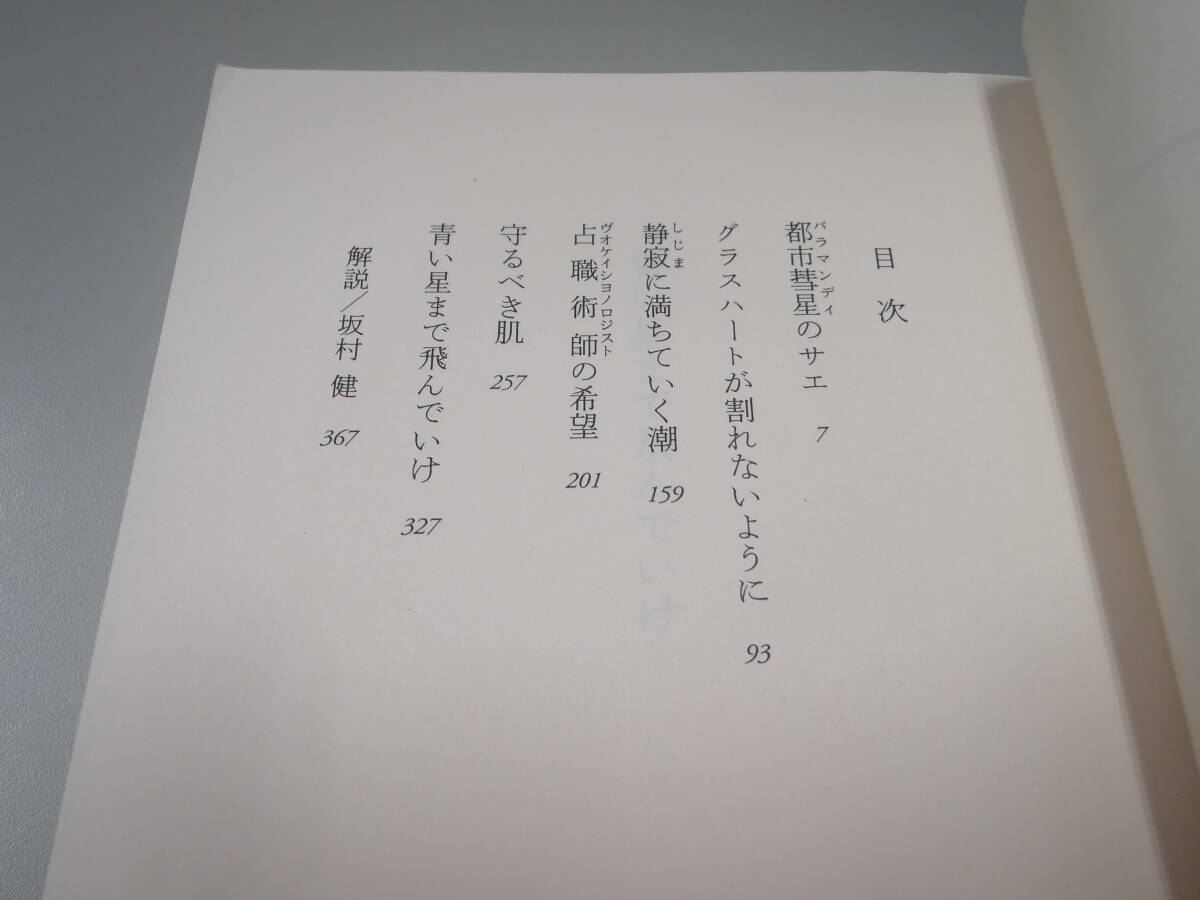 目次
都市彗星のサエ 7
バラマンディ
グラスハートが割れないように 93
静寂に満ちていく潮 159
しじま
占職術師の希望 201
ヴオケイシヨノロジスト
守るべき肌 257
青い星まで飛んでいけ 327
解説/坂村 健 367